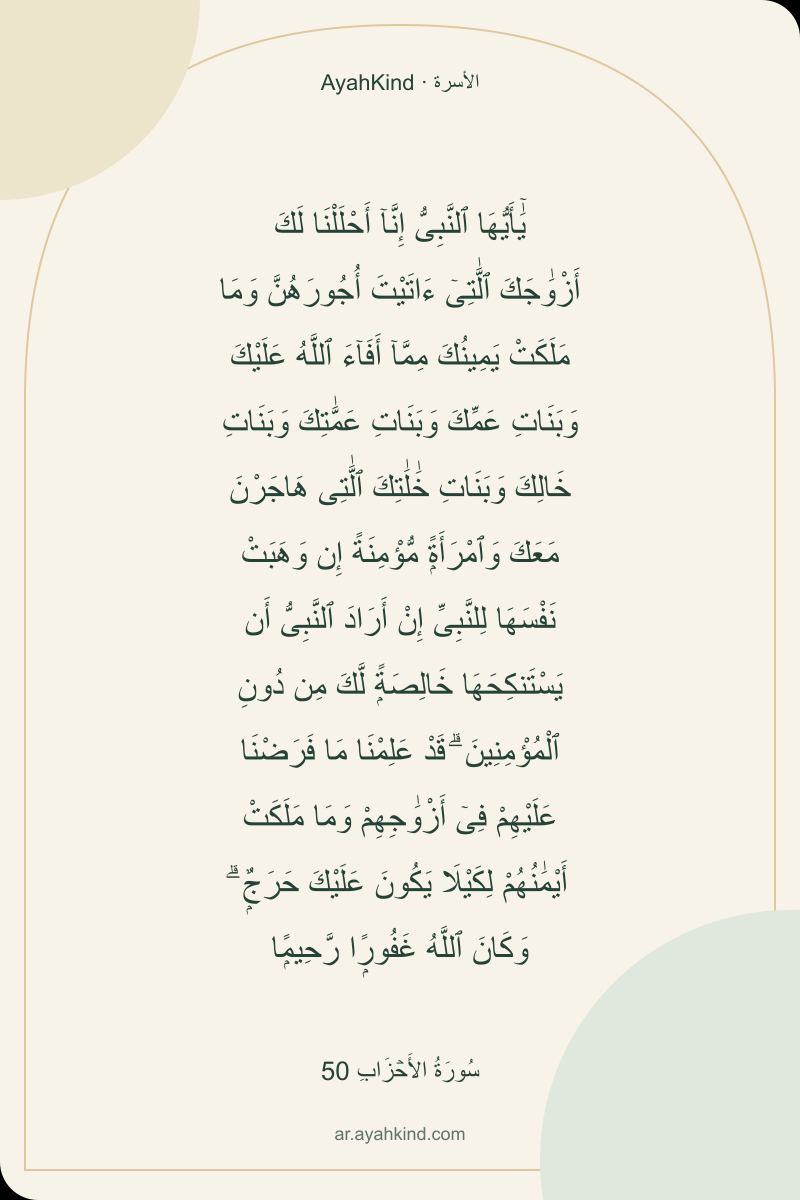 AyahKind · الأسرة
يَٰٓأَيُّهَا ٱلنَّبِىُّ إِنَّآ أَحْلَلْنَا لَكَ
أَزْوَٰجَكَ ٱلَّٰتِىٓ ءَاتَيْتَ أُجُورَهُنَّ وَمَا
مَلَكَتْ يَمِينُكَ مِمَّآ أَفَآءَ ٱللَّهُ عَلَيْكَ
وَبَنَاتِ عَمِّكَ وَبَنَاتِ عَمَّٰتِكَ وَبَنَاتِ
خَالِكَ وَبَنَاتِ خَٰلَٰتِكَ ٱلَّٰتِى هَاجَرْنَ
مَعَكَ وَٱمْرَأَةًۭ مُّؤْمِنَةً إِن وَهَبَتْ
نَفْسَهَا لِلنَّبِىِّ إِنْ أَرَادَ ٱلنَّبِىُّ أَن
يَسْتَنكِحَهَا خَالِصَةًۭ لَّكَ مِن دُونِ
ٱلْمُؤْمِنِينَ ۗ قَدْ عَلِمْنَا مَا فَرَضْنَا
عَلَيْهِمْ فِىٓ أَزْوَٰجِهِمْ وَمَا مَلَكَتْ
أَيْمَٰنُهُمْ لِكَيْلَا يَكُونَ عَلَيْكَ حَرَجٌۭ ۗ
وَكَانَ ٱللَّهُ غَفُورًۭا رَّحِيمًۭا
سُورَةُ الأَحۡزَابِ 50
ar.ayahkind.com